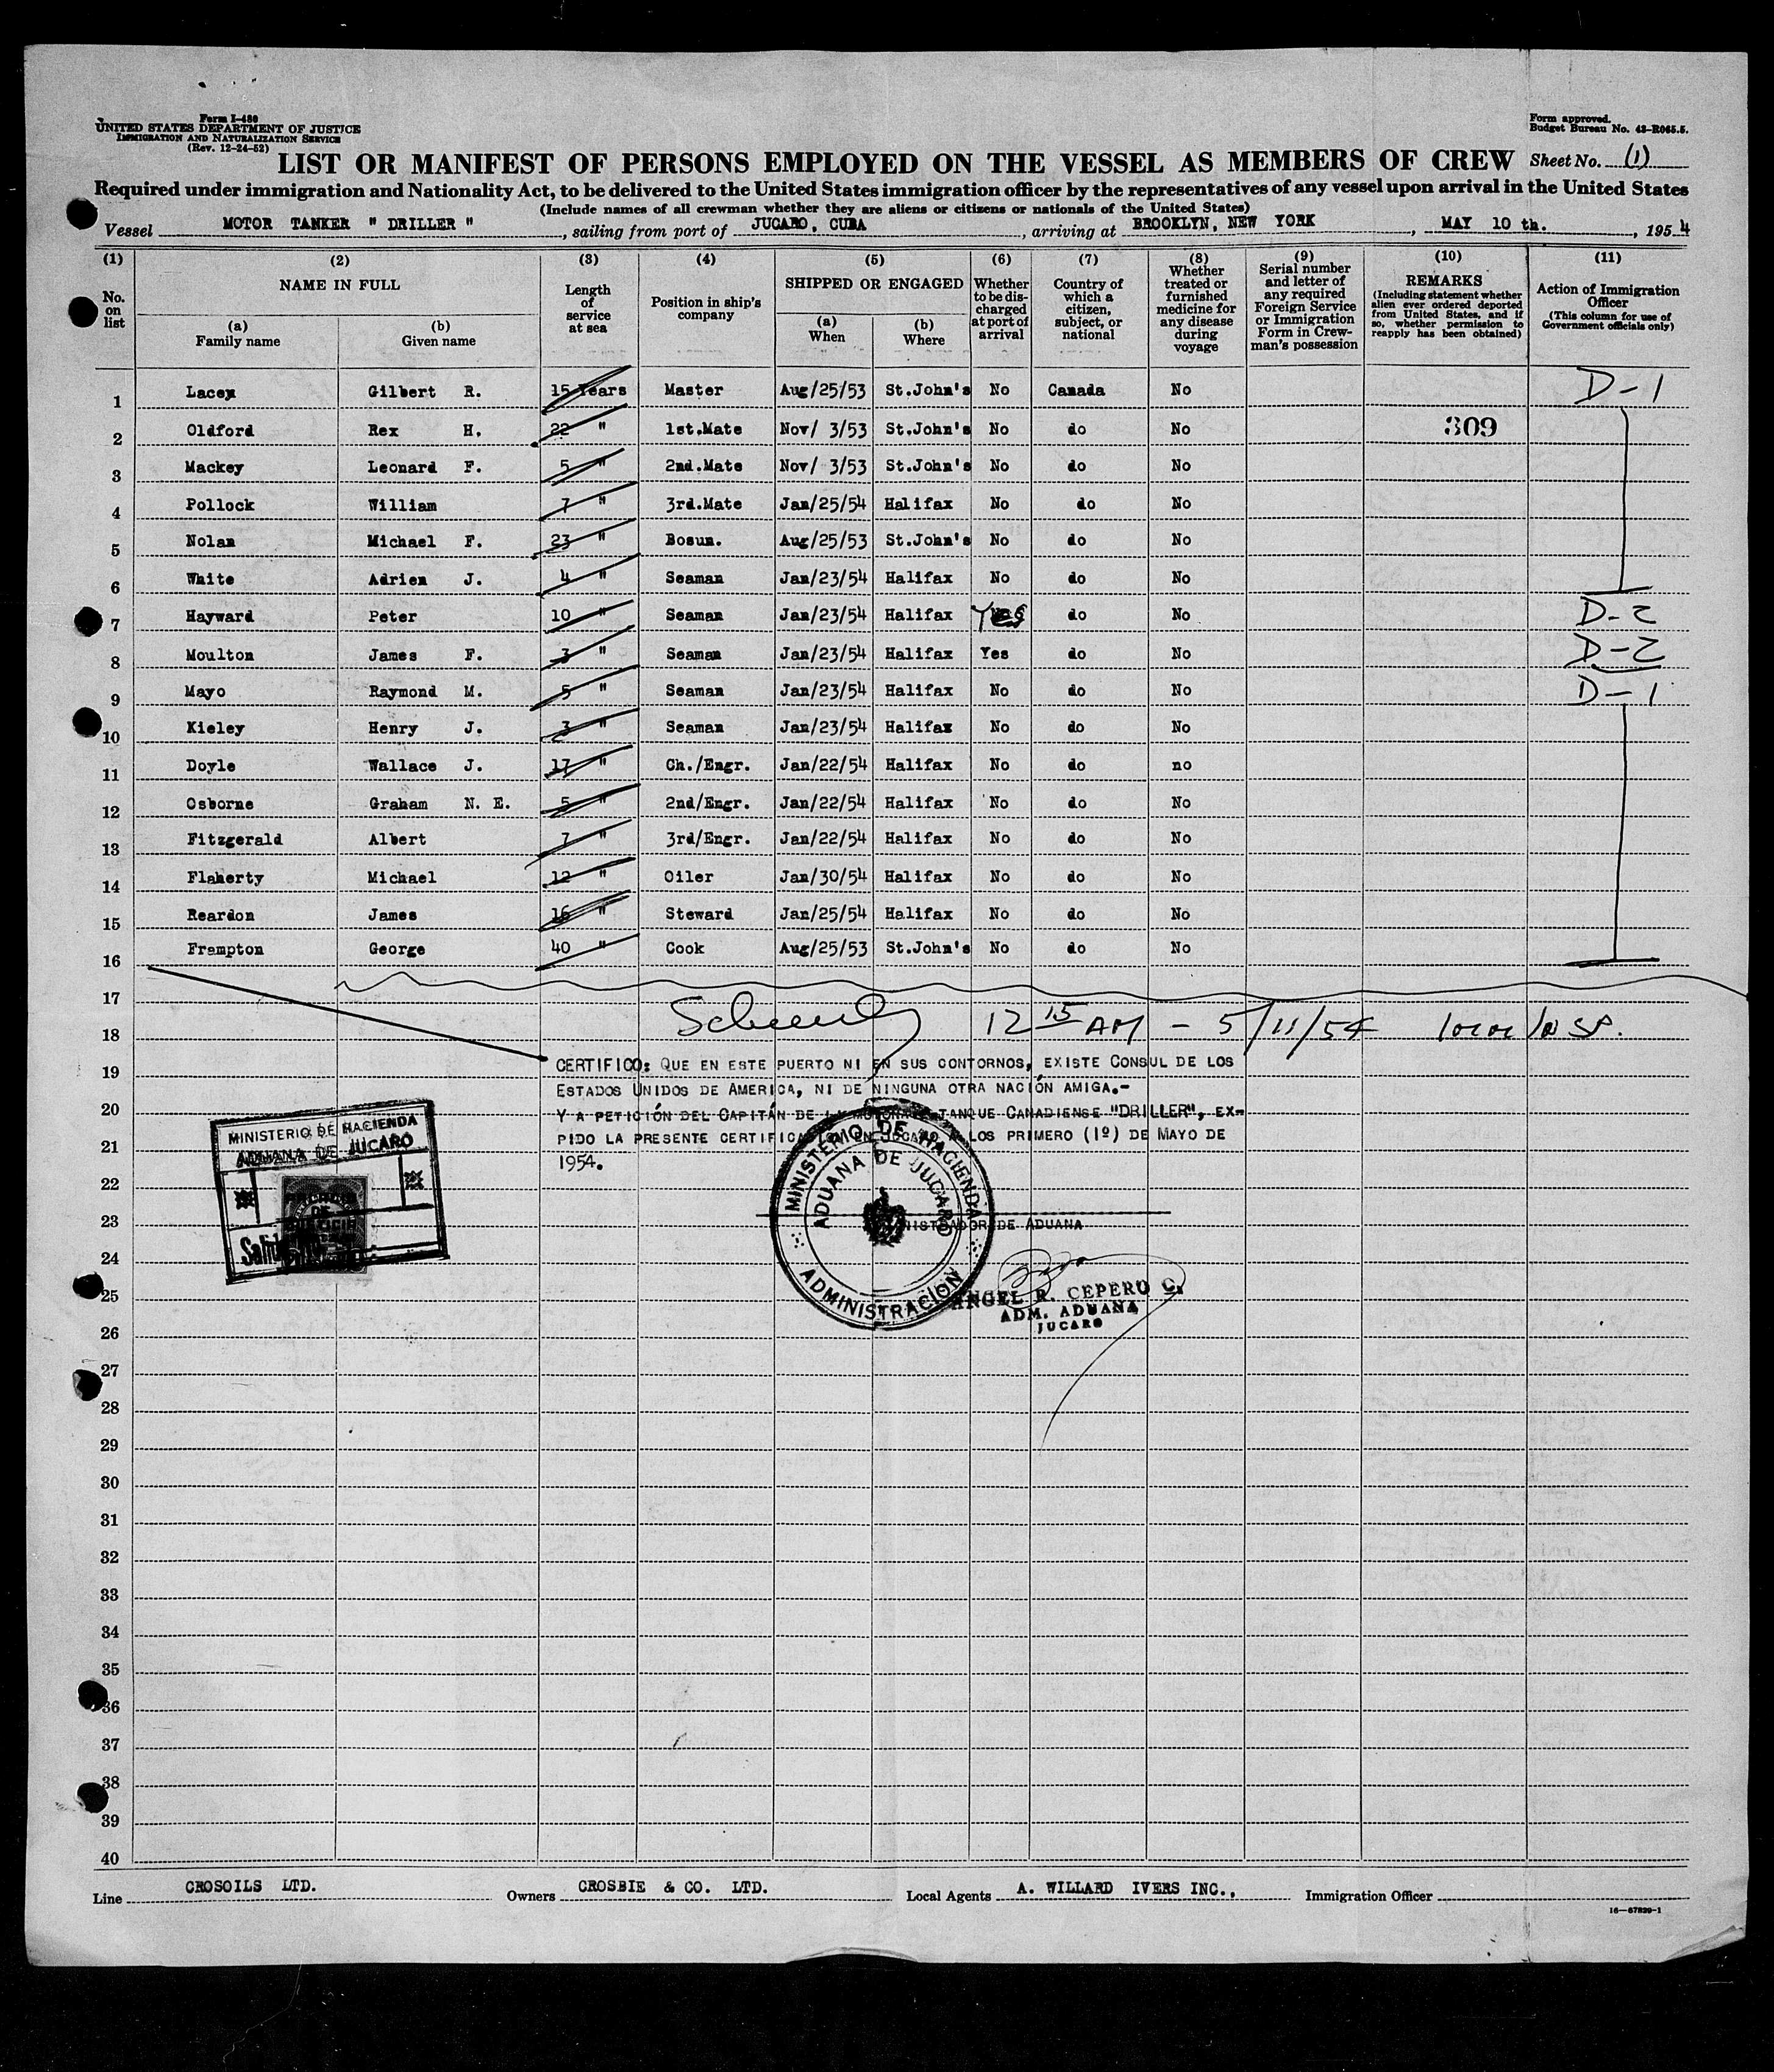 Form I-480
UNITED STATES DEPARTMENT OF JUSTICE
IMMIGRATION AND NATURALIZATION SERVICE
(Rev. 12-24-52)
Form approved.
Budget Bureau No. 43-R065.5.
LIST OR MANIFEST OF PERSONS EMPLOYED ON THE VESSEL AS MEMBERS OF CREW Sheet No. (1)
Required under immigration and Nationality Act, to be delivered to the United States immigration officer by the representatives of any vessel upon arrival in the United States
(Include names of all crewman whether they are aliens or citizens or nationals of the United States)
Vessel MOTOR TANKER " DRILLER ", sailing from port of JUCARO, CUBA, arriving at BROOKLYN, NEW YORK, MAY 10 th., 1954
(1) No. on list
(2) NAME IN FULL
(a) Family name
(b) Given name
(3) Length of service at sea
(4) Position in ship's company
(5) SHIPPED OR ENGAGED
(a) When
(b) Where
(6) Whether to be discharged at port of arrival
(7) Country of which a citizen, subject, or national
(8) Whether treated or furnished medicine for any disease during voyage
(9) Serial number and letter of any required Foreign Service or Immigration Form in Crewman's possession
(10) REMARKS (Including statement whether alien ever ordered deported from United States, and if so, whether permission to reapply has been obtained)
(11) Action of Immigration Officer (This column for use of Government officials only)
1 Lacey Gilbert R. 15 Years Master Aug/25/53 St.John's No Canada No D-1
2 Oldford Rex H. 22 " 1st.Mate Nov/ 3/53 St.John's No do No 309
3 Mackey Leonard F. 5 " 2nd.Mate Nov/ 3/53 St.John's No do No
4 Pollock William 7 " 3rd.Mate Jan/25/54 Halifax No do No
5 Nolan Michael F. 23 " Bosun. Aug/25/53 St.John's No do No
6 White Adrien J. 4 " Seaman Jan/23/54 Halifax No do No
7 Hayward Peter 10 " Seaman Jan/23/54 Halifax Yes do No D-2
8 Moulton James F. 3 " Seaman Jan/23/54 Halifax Yes do No D-2
9 Mayo Raymond M. 5 " Seaman Jan/23/54 Halifax No do No D-1
10 Kieley Henry J. 3 " Seaman Jan/23/54 Halifax No do No
11 Doyle Wallace J. 17 " Ch./Engr. Jan/22/54 Halifax No do no
12 Osborne Graham N. E. 5 " 2nd/Engr. Jan/22/54 Halifax No do No
13 Fitzgerald Albert 7 " 3rd/Engr. Jan/22/54 Halifax No do No
14 Flaherty Michael 12 " Oiler Jan/30/54 Halifax No do No
15 Reardon James 16 " Steward Jan/25/54 Halifax No do No
16 Frampton George 40 " Cook Aug/25/53 St.John's No do No
17
18 12 15 AM - 5/11/54
19 CERTIFICO: QUE EN ESTE PUERTO NI EN SUS CONTORNOS, EXISTE CONSUL DE LOS
ESTADOS UNIDOS DE AMERICA, NI DE NINGUNA OTRA NACIÓN AMIGA.-
20 Y A PETICIÓN DEL CAPITÁN DE LA TANQUE CANADIENSE "DRILLER", EX-
21 PIDO LA PRESENTE EN JUCARO A LOS PRIMERO (1º) DE MAYO DE
1954.
MINISTERIO DE HACIENDA
ADUANA DE JUCARO
22
MINISTERIO DE HACIENDA
ADUANA DE JUCARO
ADMINISTRACIÓN
23 DE ADUANA
24
25 ANGEL R. CEPERO C.
ADM. ADUANA
JUCARO
26
27
28
29
30
31
32
33
34
35
36
37
38
39
40
Line CROSOILS LTD. Owners CROSBIE & CO. LTD. Local Agents A. WILLARD IVERS INC., Immigration Officer
16-67829-1